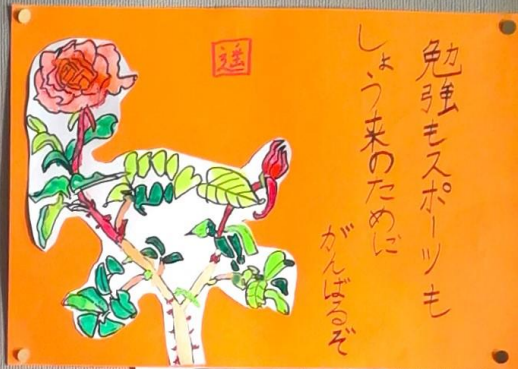 勉強もスポーツも
しょう来のために
がんばるぞ
遥